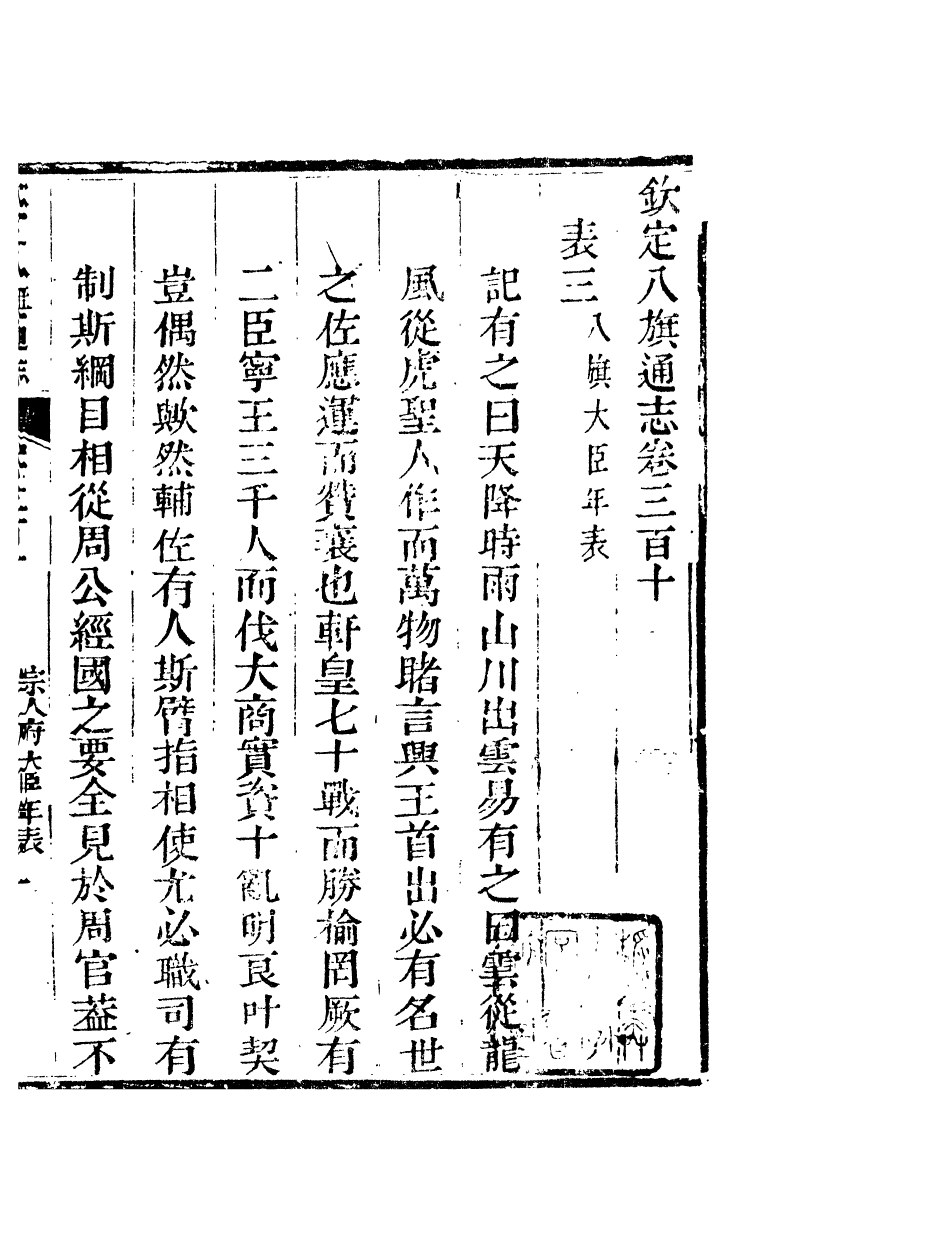 欽定八旗通志卷三百十
表三 八旗大臣年表
記有之曰天降時雨山川出雲易有之曰雲從龍
風從虎聖人作而萬物睹言興王首出必有名世
之佐應運而贊襄也軒皇七十戰而勝榆罔厥有
二臣寧王三千人而伐大商實資十亂明良叶契
豈偶然歟然輔佐有人斯臂指相使尤必職司有
制斯綱目相從周公經國之要全見於周官葢不
宗人府大臣年表 一